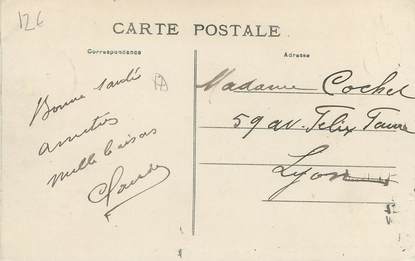 12€
CARTE POSTALE
Correspondance
Adresse
Bonne santé
amitiés
mille baisers
Claude
Madame Cochet
59 av. Felix Faure
Lyon